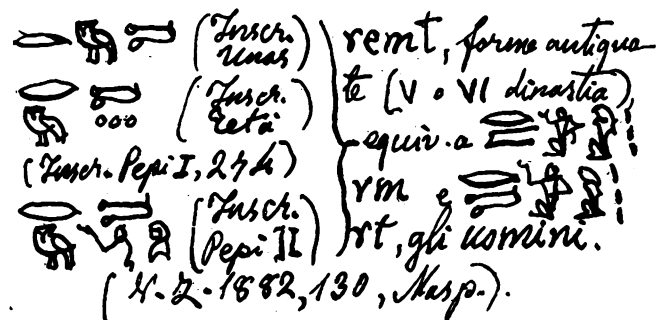 𓂋𓅓𓍿 (Inscr. Unas)
𓂋𓍿𓅓 (Inscr. Tetà)
(Inscr. Pepi I, 274)
𓂋𓍿𓅓𓀀𓁐 (Inscr. Pepi II)
remt, forme antiqua-
te (V o VI dinastia),
equiv. a
rm e
rt, gli uomini.
(V. Z. 1882, 130, Masp.).